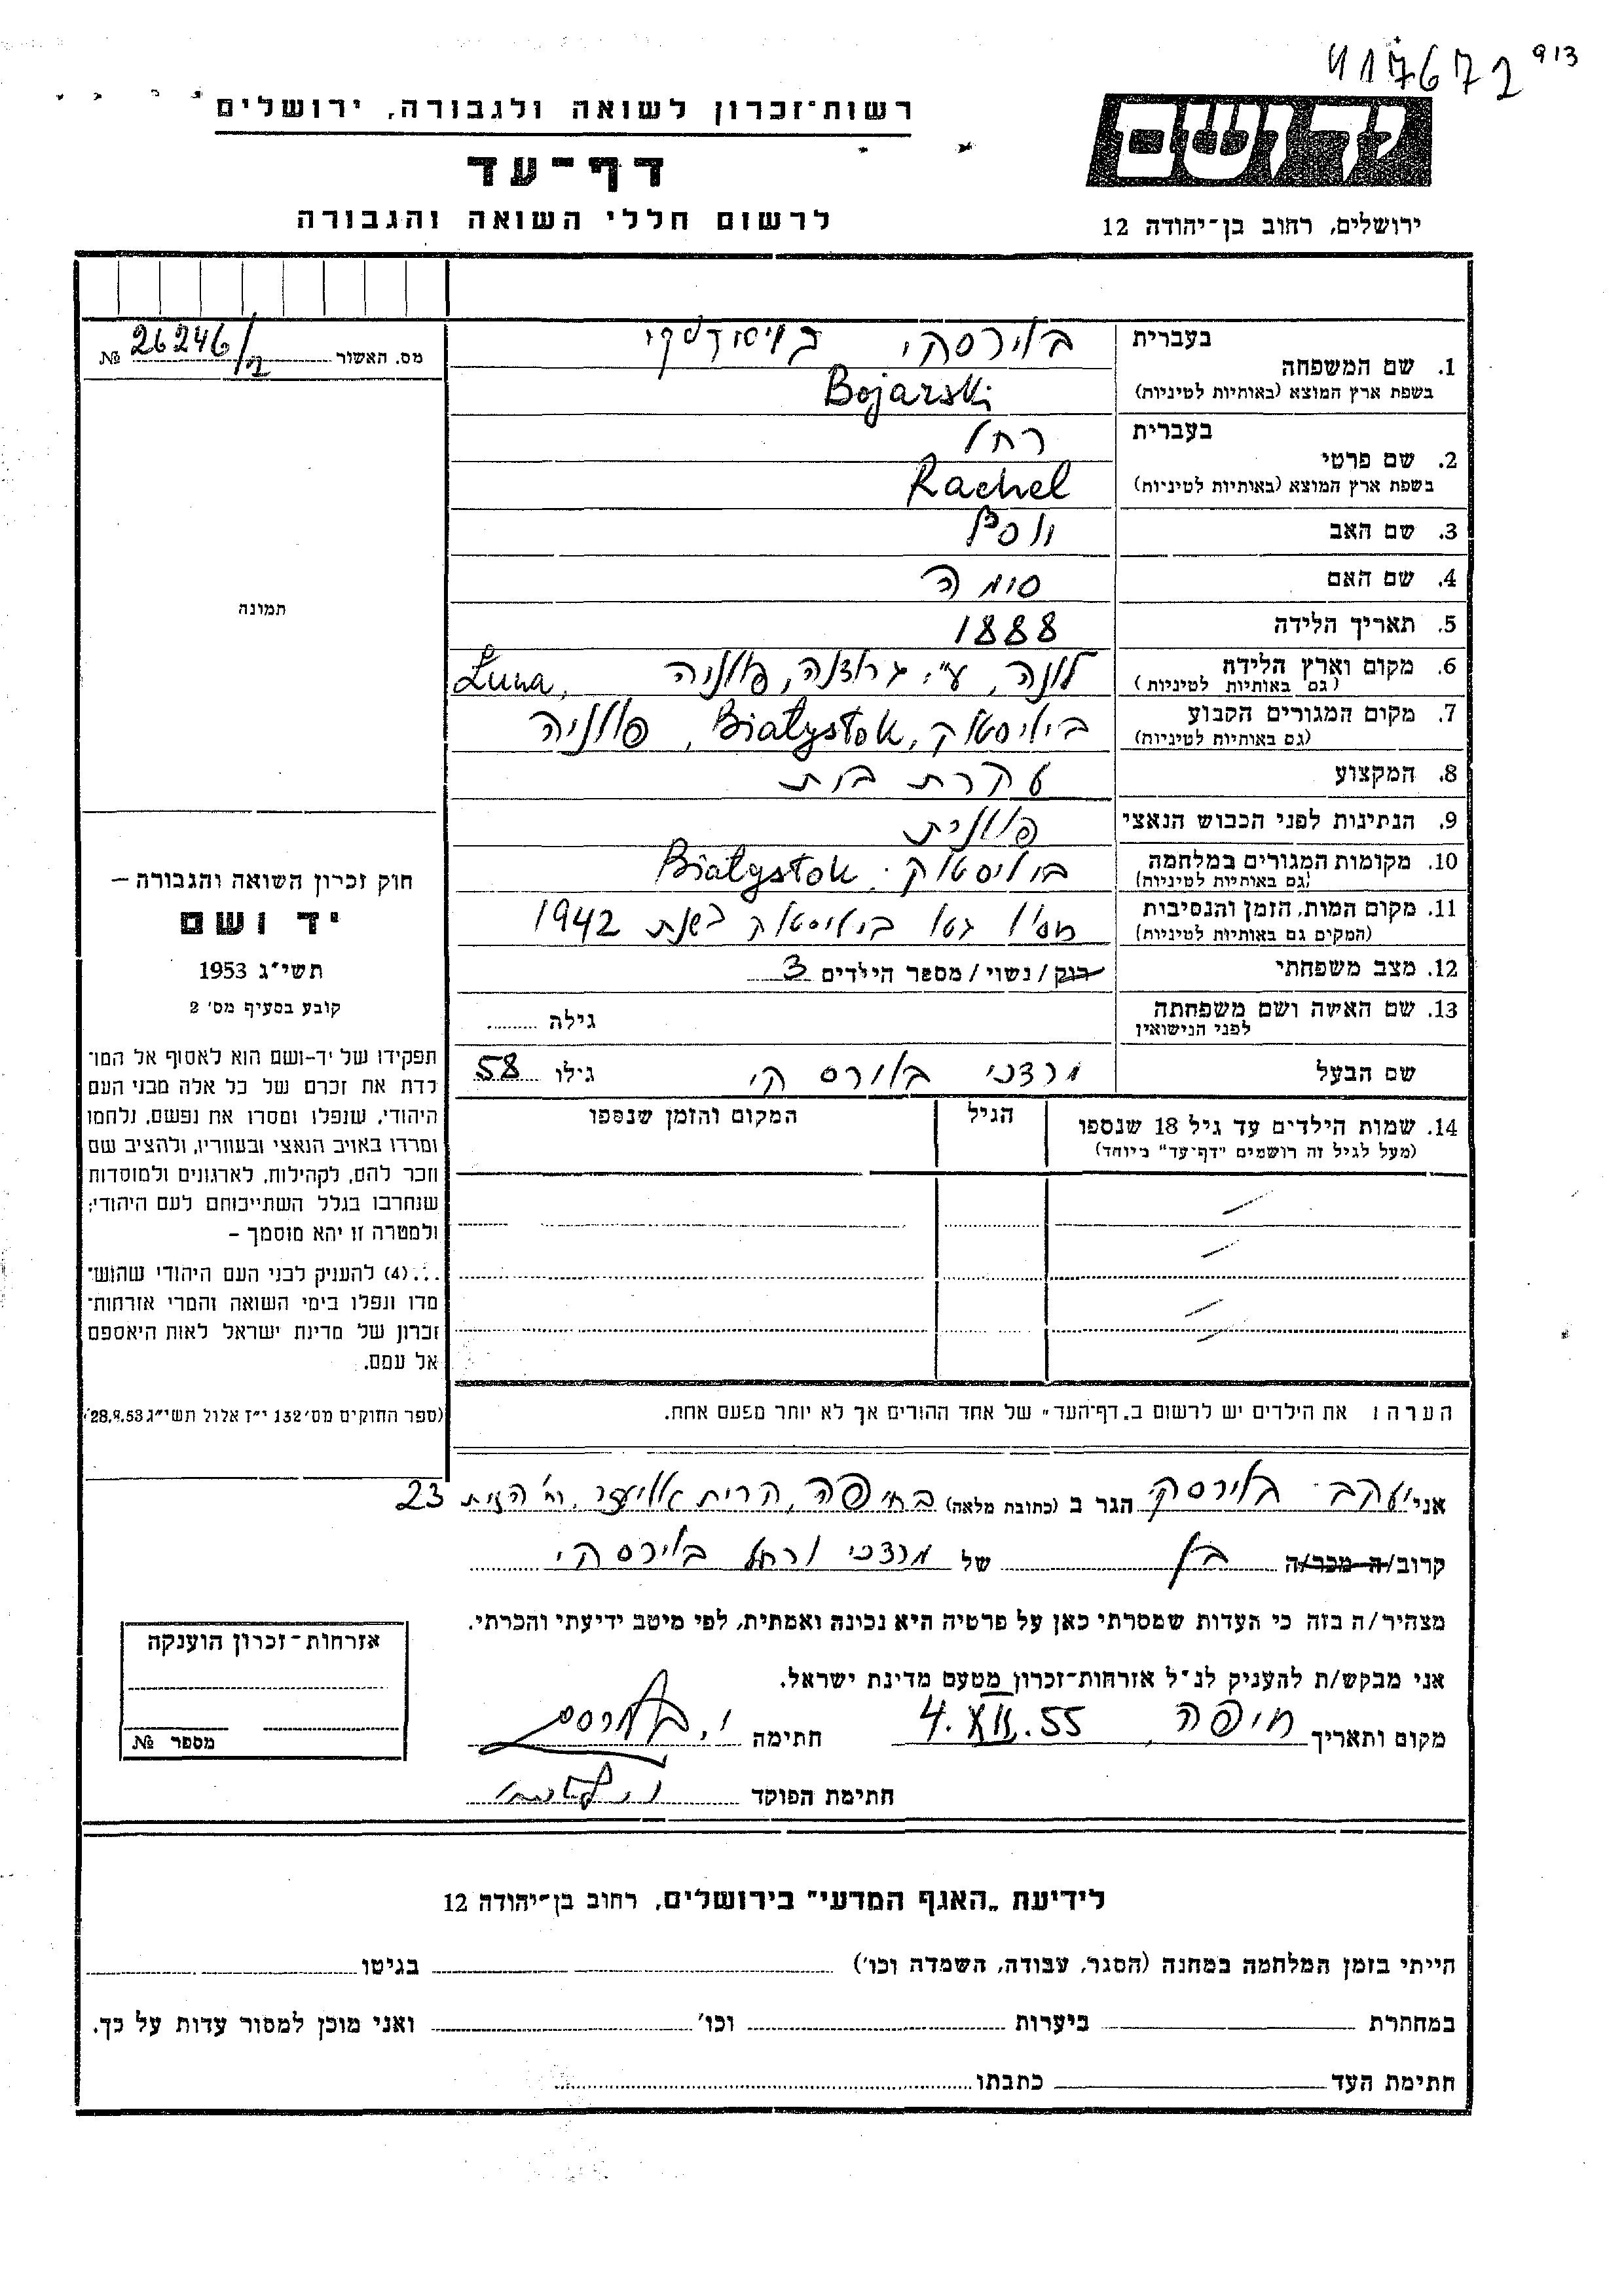 417672 913
יד ושם
ירושלים, רחוב בן־יהודה 12
רשות־זכרון לשואה ולגבורה, ירושלים
דף־עד
לרשום חללי השואה והגבורה
מס. האשור 26246/ №
בעברית
1. שם המשפחה
בוירסקי
בשפת ארץ המוצא (באותיות לטיניות) Bojarski
בעברית
2. שם פרטי
רחל
בשפת ארץ המוצא (באותיות לטיניות) Rachel
3. שם האב
4. שם האם סימה
5. תאריך הלידה 1888
6. מקום וארץ הלידה לונה, ע"י גרודנה, פולניה Łuna,
(גם באותיות לטיניות)
7. מקום המגורים הקבוע ביליסטוק, Białystok, פולניה
(גם באותיות לטיניות)
8. המקצוע עקרת בית
9. הנתינות לפני הכבוש הנאצי פולנית
10. מקומות המגורים במלחמה ביליסטוק. Białystok
(גם באותיות לטיניות)
11. מקום המות, הזמן והנסיבות גטו ביליסטוק בשנת 1942
(המקים גם באותיות לטיניות)
12. מצב משפחתי רוק / נשוי / מספר הילדים 3
13. שם האשה ושם משפחתה
לפני הנישואין
גילה
שם הבעל מרדכי בוירסקי גילו 58
14. שמות הילדים עד גיל 18 שנספו
(מעל לגיל זה רושמים "דף־עד" מיוחד)
הגיל
המקום והזמן שנספו
הערה: את הילדים יש לרשום ב„דף־העד" של אחד ההורים אך לא יותר מפעם אחת.
תמונה
חוק זכרון השואה והגבורה –
יד ושם
תשי"ג 1953
קובע בסעיף מס' 2
תפקידו של יד-ושם הוא לאסוף אל המו־
לדת את זכרם של כל אלה מבני העם
היהודי, שנפלו ומסרו את נפשם, נלחמו
ומרדו באויב הנאצי ובעוזריו, ולהציב שם
וזכר להם, לקהילות, לארגונים ולמוסדות
שנחרבו בגלל השתייכותם לעם היהודי;
ולמטרה זו יהא מוסמך –
...(4) להעניק לבני העם היהודי שהוש־
מדו ונפלו בימי השואה והמרי אזרחות־
זכרון של מדינת ישראל לאות היאספם
אל עמם.
(ספר החוקים מס' 132 י"ז אלול תשי"ג 28.8.53)
אני יעקב בוירסקי הגר ב (כתובת מלאה) בחיפה, קרית אליעזר, רח' הזית 23
קרוב/ה מכר/ה בן של מרדכי ורחל בוירסקי
מצהיר/ה בזה כי העדות שמסרתי כאן על פרטיה היא נכונה ואמתית, לפי מיטב ידיעתי והכרתי.
אני מבקש/ת להעניק לנ"ל אזרחות־זכרון מטעם מדינת ישראל.
מקום ותאריך חיפה, 4.XII.55 חתימה
חתימת הפוקד
אזרחות־זכרון הוענקה
מספר №
לידיעת „האגף המדעי" בירושלים, רחוב בן־יהודה 12
הייתי בזמן המלחמה במחנה (הסגר, עבודה, השמדה וכו') בגיטו
במחתרת ביערות וכו' ואני מוכן למסור עדות על כך.
חתימת העד כתבתו